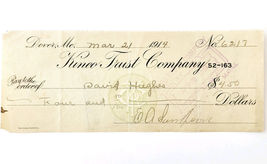 Dover, Me. Mar 21 1919 No. 6217
Kineo Trust Company 52-163
Pay to the
order of David Hughes $4.00
Four and Dollars